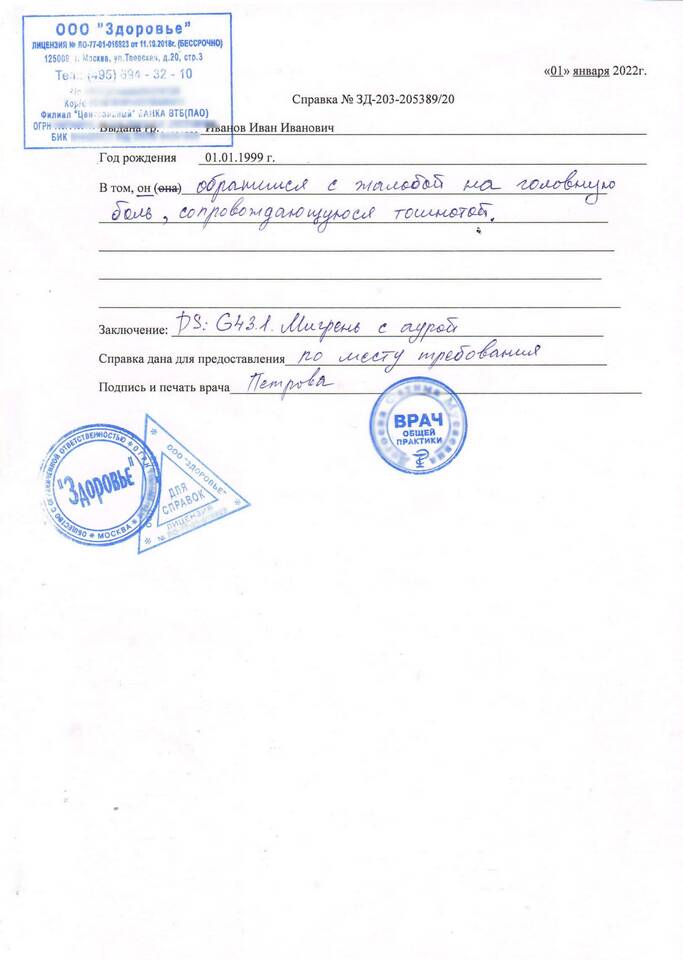 ООО "Здоровье"
ЛИЦЕНЗИЯ № ЛО-77-01-016823 от 11.10.2018г. (БЕССРОЧНО)
125009, г. Москва, ул.Тверская, д.20, стр.3
Тел.: (495) 694 - 32 - 10
Филиал "Центральный" БАНКА ВТБ(ПАО)
ОГРН
БИК
«01» января 2022г.
Справка № ЗД-203-205389/20
Выдана гр. Иванов Иван Иванович
Год рождения 01.01.1999 г.
В том, он (она) обратился с жалобой на головную
боль, сопровождающуюся тошнотой.
Заключение: DS: G43.1. Мигрень с аурой
Справка дана для предоставления по месту требования
Подпись и печать врача Петрова
ВРАЧ
ОБЩЕЙ
ПРАКТИКИ
ОБЩЕСТВО С ОГРАНИЧЕННОЙ ОТВЕТСТВЕННОСТЬЮ
МОСКВА
"Здоровье"
ООО "ЗДОРОВЬЕ"
ДЛЯ
СПРАВОК
ЛИЦЕНЗИЯ